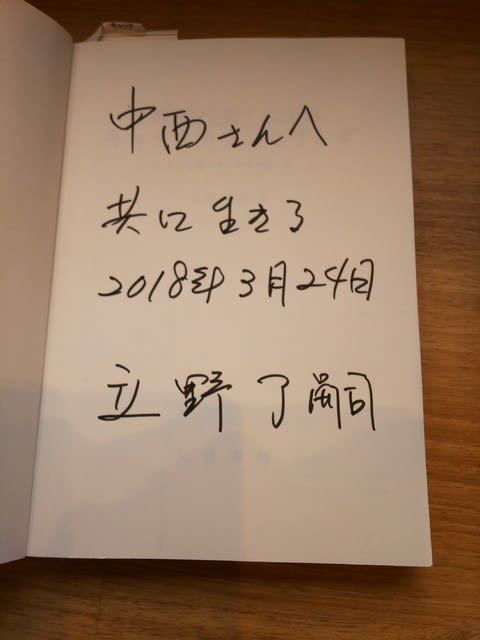 中西さんへ
共に生きる
2018年3月24日
立野了嗣